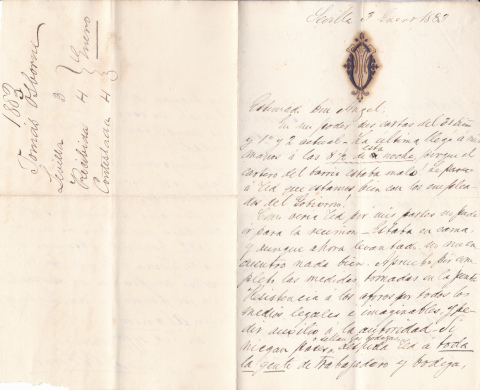 1883
Tomás Osborne
Sevilla 3
Recibida 4 } Enero
Contestada 4
Sevilla 3 Enero 1883
Estimado Don Angel
En mi poder dos cartas del 31
y 1º y 2 actual - La ultima llegó a mis
manos á las 8 1/2 de esta noche, porque el
cartero del barrio estaba malo!
á Ud que estamos bien con los emplea-
dos del Gobierno!
Como veria Ud por mis partes no pude
ir para la reunion - Estaba en cama
y aunque ahora levantado, no me en
cuentro nada bien. Apruebo por com
pleto las medidas tomadas en la junta
Resistencia a los aforos por todos los
medios legales e imaginables, y pe-
dir auxilio a la autoridad. Si
niegan
despida Ud a toda
la gente de trabajadero y bodega,